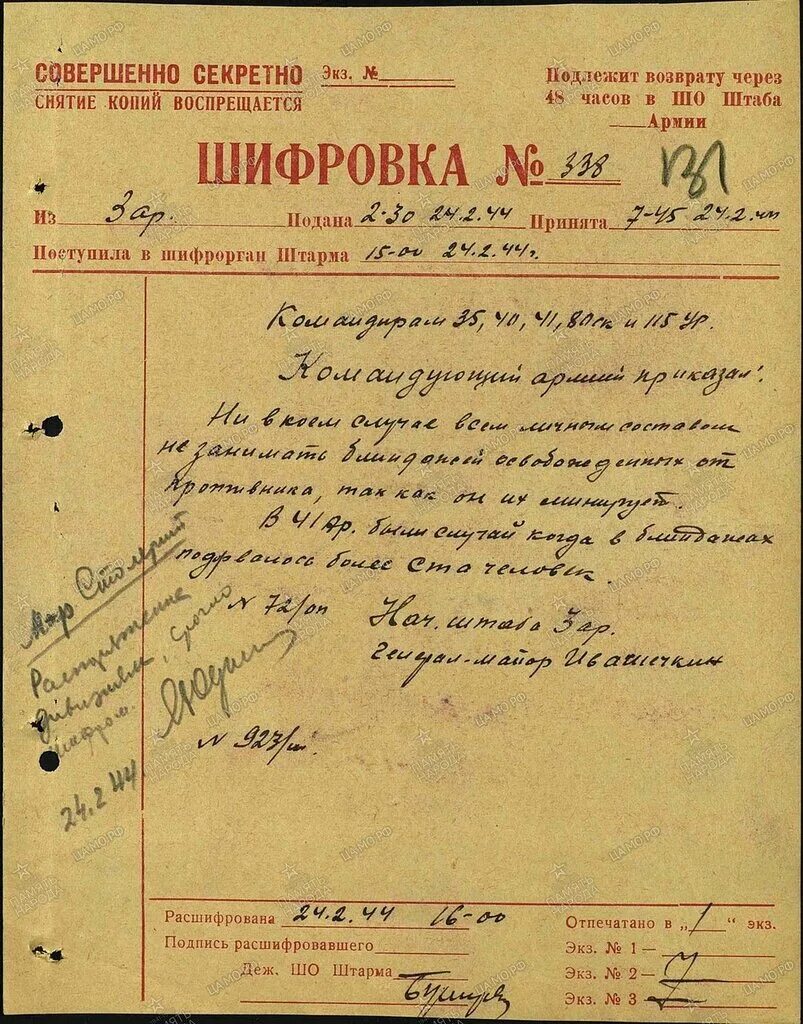 СОВЕРШЕННО СЕКРЕТНО
СНЯТИЕ КОПИЙ ВОСПРЕЩАЕТСЯ
Экз. №
Подлежит возврату через
48 часов в ШО Штаба
Армии
ШИФРОВКА № 338
131
Из 3 ар. Подана 2-30 24.2.44 Принята 7-45 24.2.44
Поступила в шифрорган Штарма 15-00 24.2.44г.
Командирам 35, 40, 41, 80 ск и 115 УР.
Командующий армией приказал:
Ни в коем случае всем личным составом
не занимать блиндажей освобожденных от
противника, так как он их минирует.
В 41 Ар. были случай когда в блиндажах
подорвалось более ста человек.
N 72/оп
Нач. штаба 3 ар.
Генерал-майор Ивашечкин
N 923/ш
М-р
дивизиям, срочно
шифром.
24.2.44
Расшифрована 24.2.44 16-00
Подпись расшифровавшего
Деж. ШО Штарма
Отпечатано в „1“ экз.
Экз. № 1 —
Экз. № 2 —
Экз. № 3 —
ЦАМО.РФ
ПАМЯТЬ НАРОДА